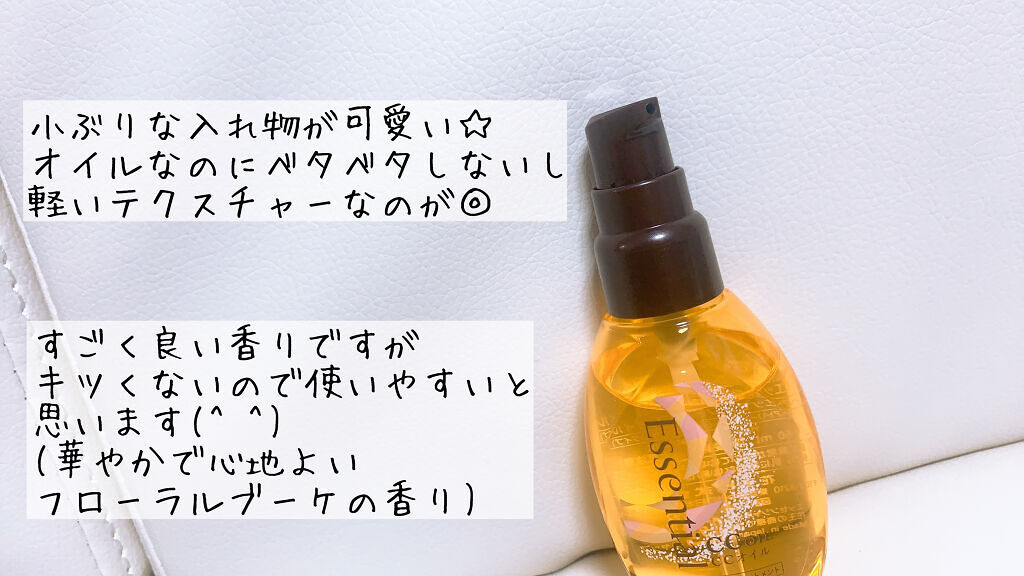 小ぶりな入れ物が可愛い☆
オイルなのにベタベタしないし
軽いテクスチャーなのが◎
すごく良い香りですが
キツくないので使いやすいと
思います(^ ^)
(華やかで心地よい
フローラルブーケの香り)
Essential
CCオイル